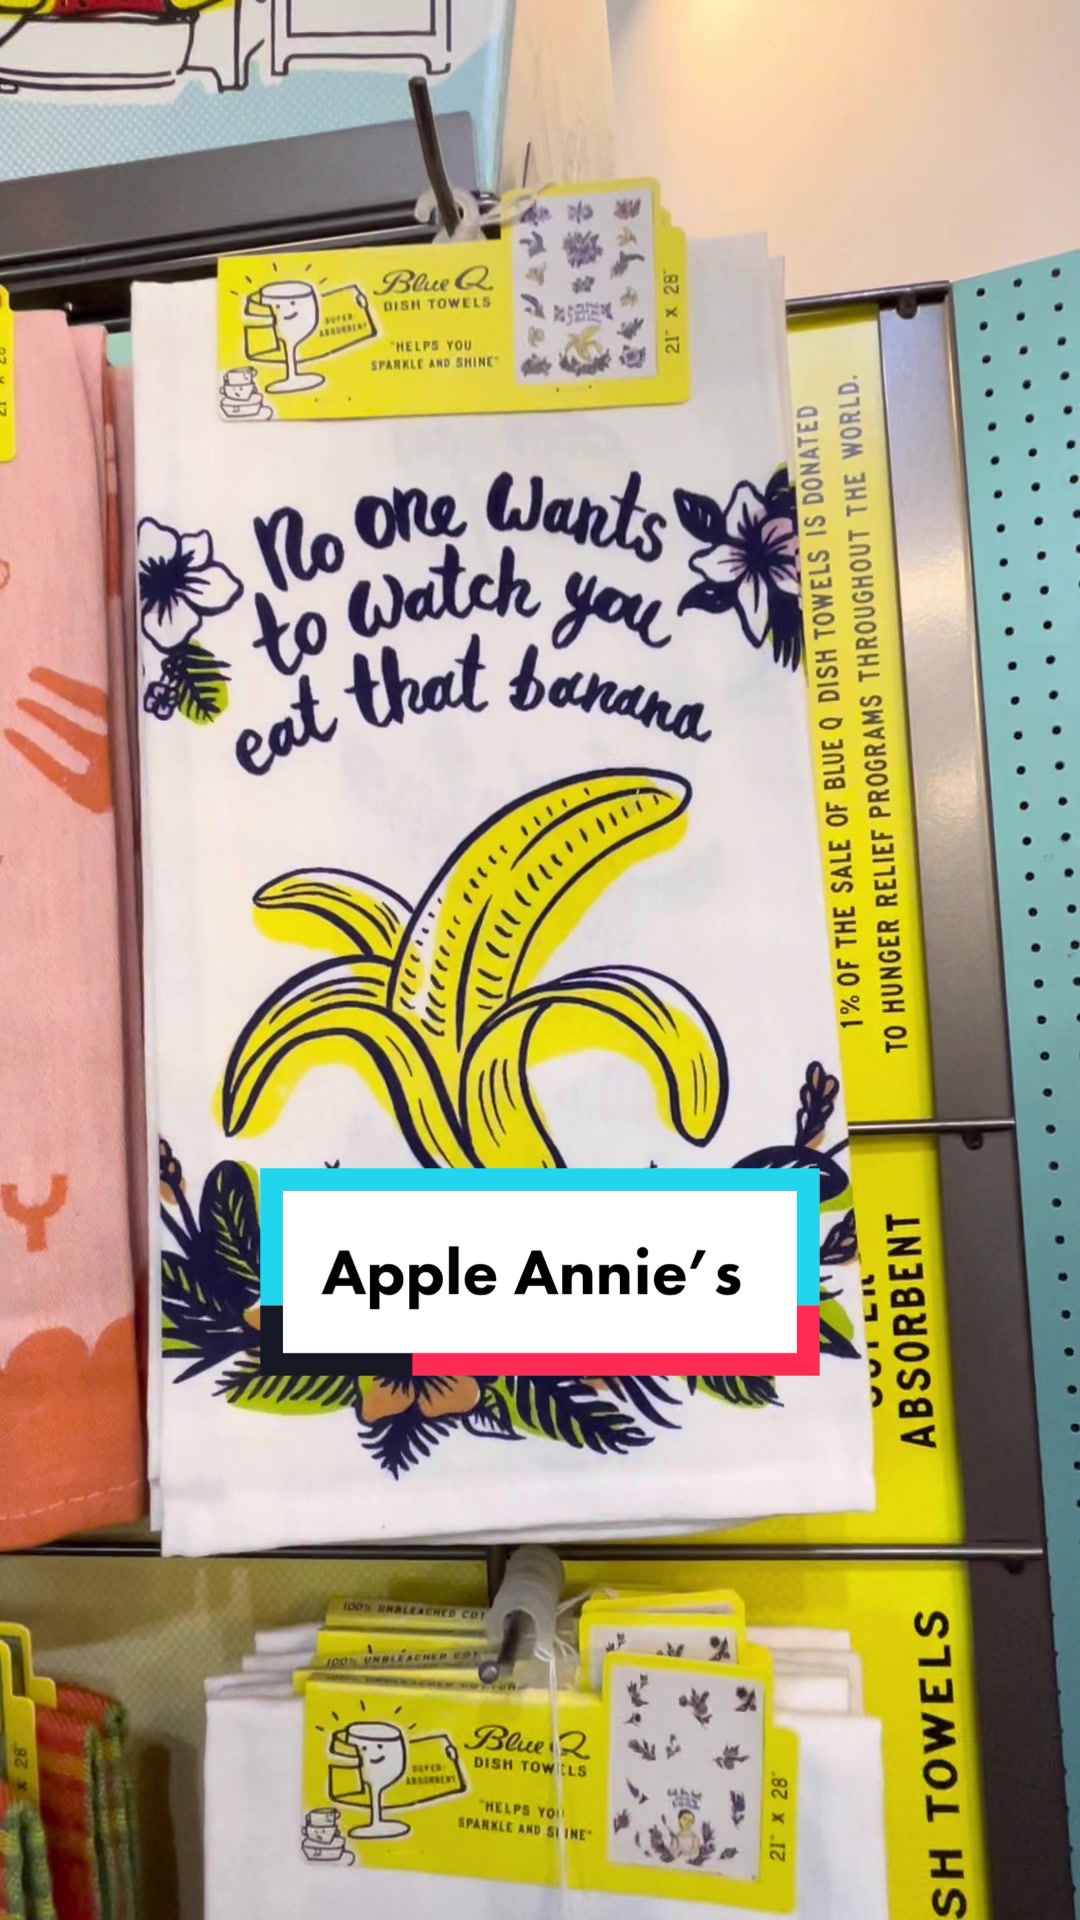 Blue Q
DISH TOWELS
SUPER-
ABSORBENT
"HELPS YOU
SPARKLE AND SHINE"
21" X 28"
No one wants
to watch you
eat that banana
1% OF THE SALE OF BLUE Q DISH TOWELS IS DONATED
TO HUNGER RELIEF PROGRAMS THROUGHOUT THE WORLD.
Apple Annie's
SUPER
ABSORBENT
100% UNBLEACHED COT
100% UNBLEACHED COT
Blue Q
DISH TOWELS
SUPER-
ABSORBENT
"HELPS YOU
SPARKLE AND SHINE"
21" X 28"
SH TOWELS